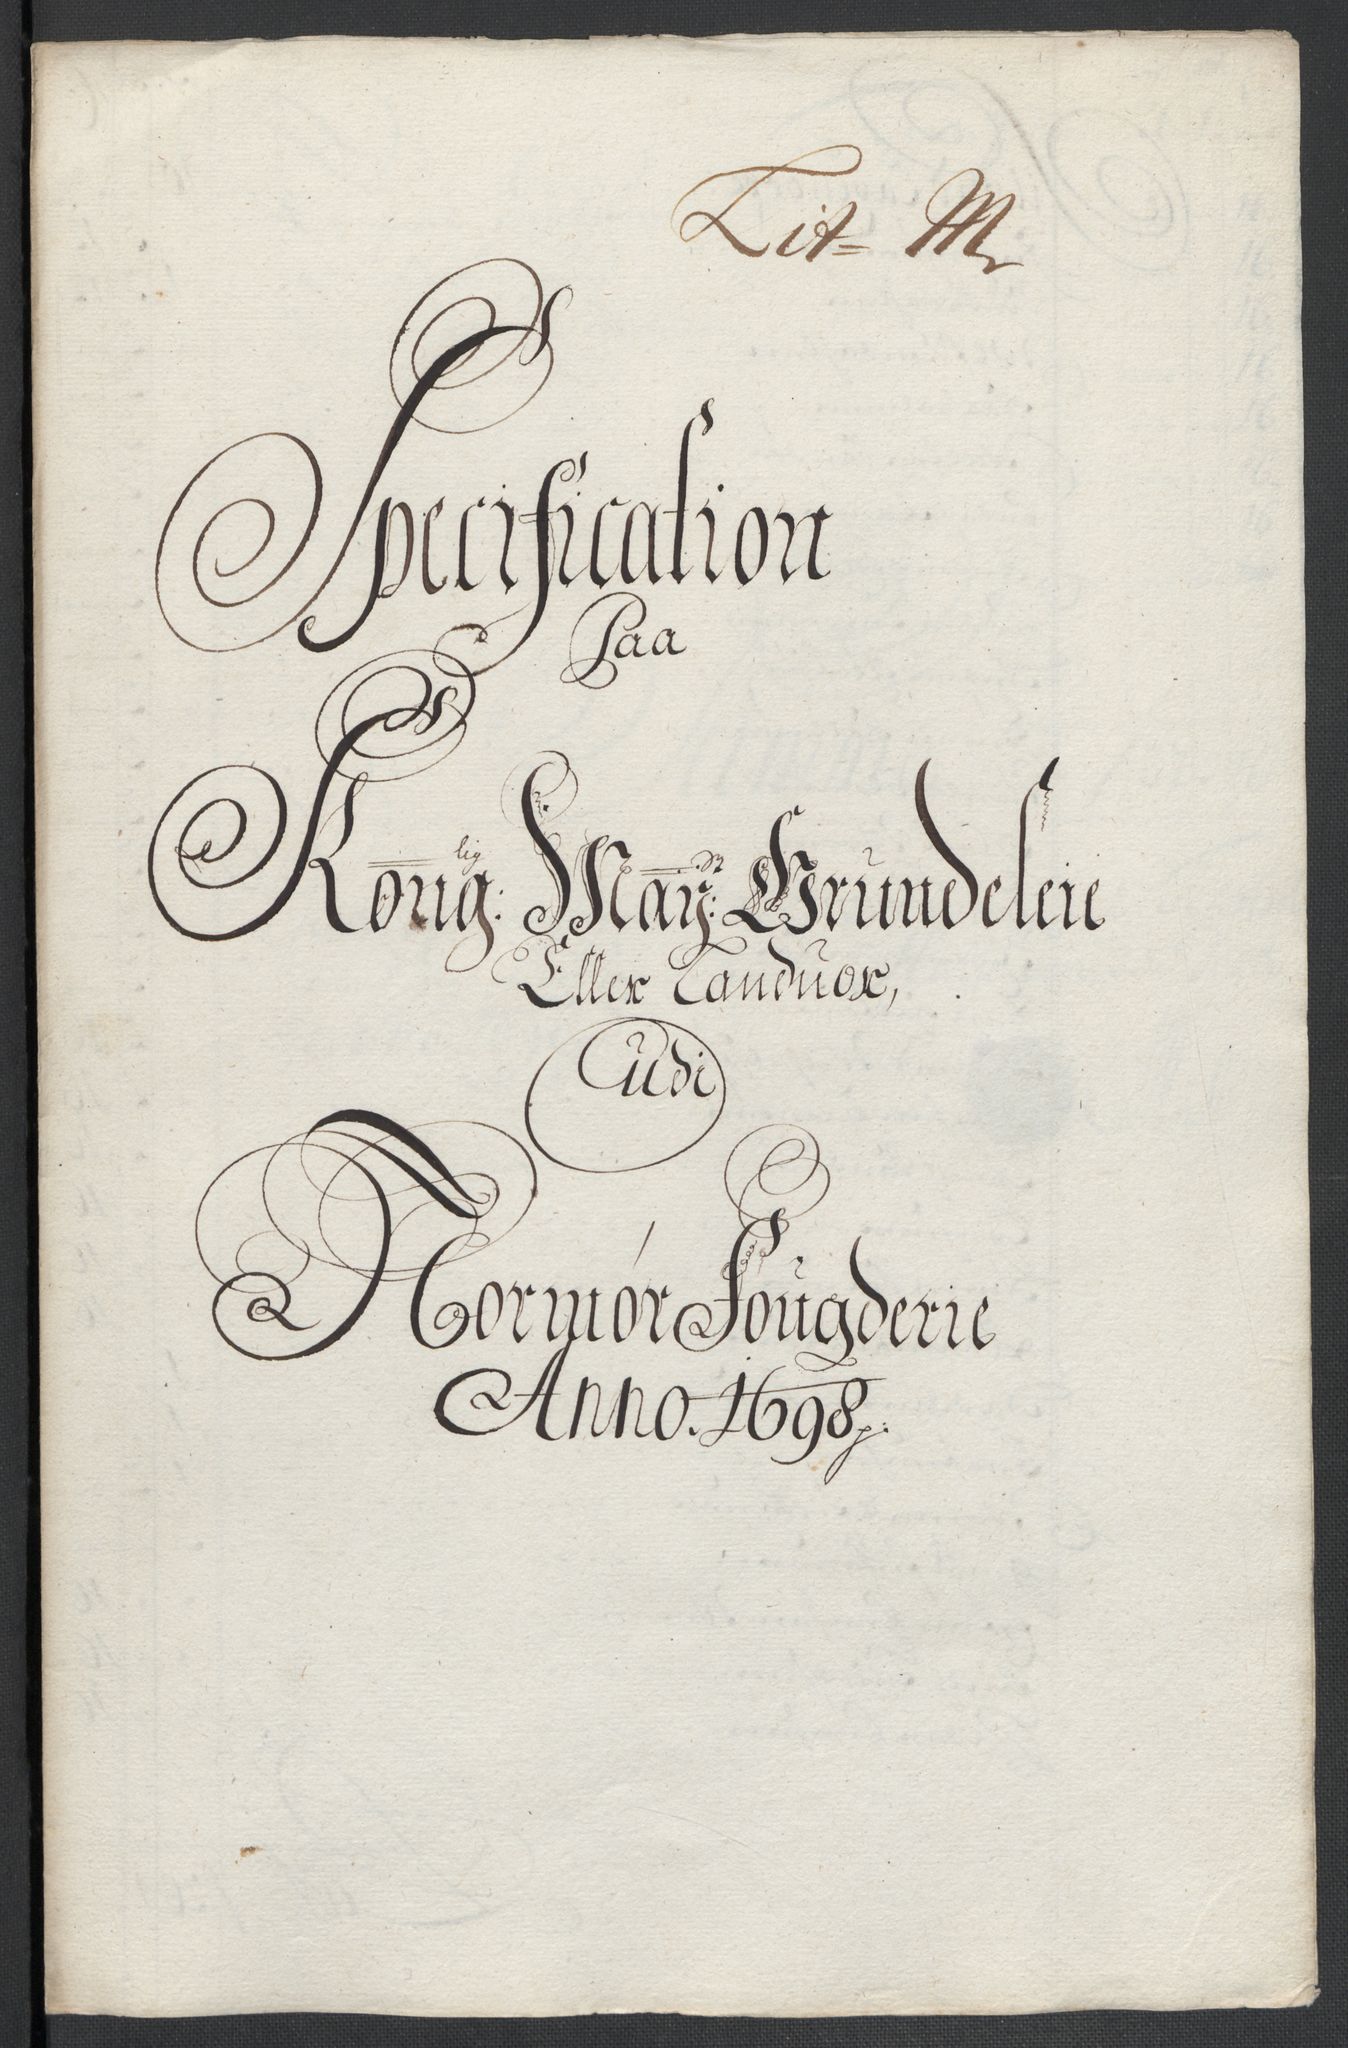 Lit= M
Specification
Paa
Kong:lig May:st Grundeleie
Eller Landuor,
Udi
Normör Fougderie
Anno. 1698